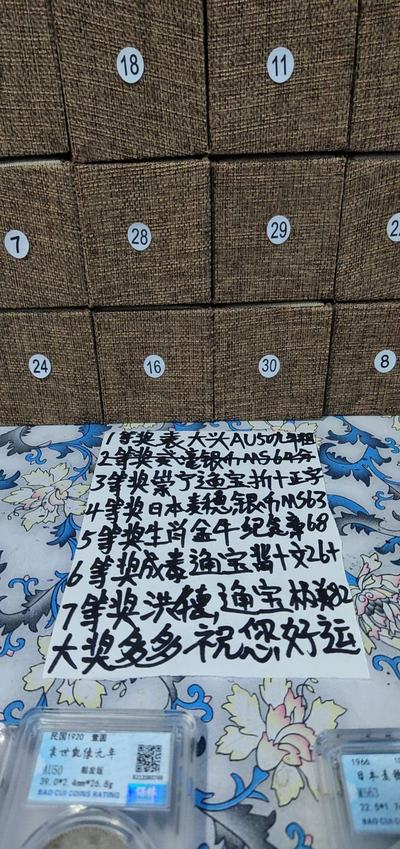 18
11
7
28
29
24
16
30
8
1等奖袁大头AU50九年粗
2等奖贰毫银币MS64分
3等奖崇宁通宝折十正字
4等奖日本麦穗银币MS63
5等奖生肖金牛纪念章68
6等奖咸丰通宝背十文26+
7等奖洪穗通宝 美82
大奖多多祝您好运
民国1920 壹圆
袁世凯像元年
AU50 精发版
39.0*2.4mm*26.8g
保粹
BAO CUI COINS RATING
1966
日本麦穗
MS63
22.5*1.7
BAO CUI COI